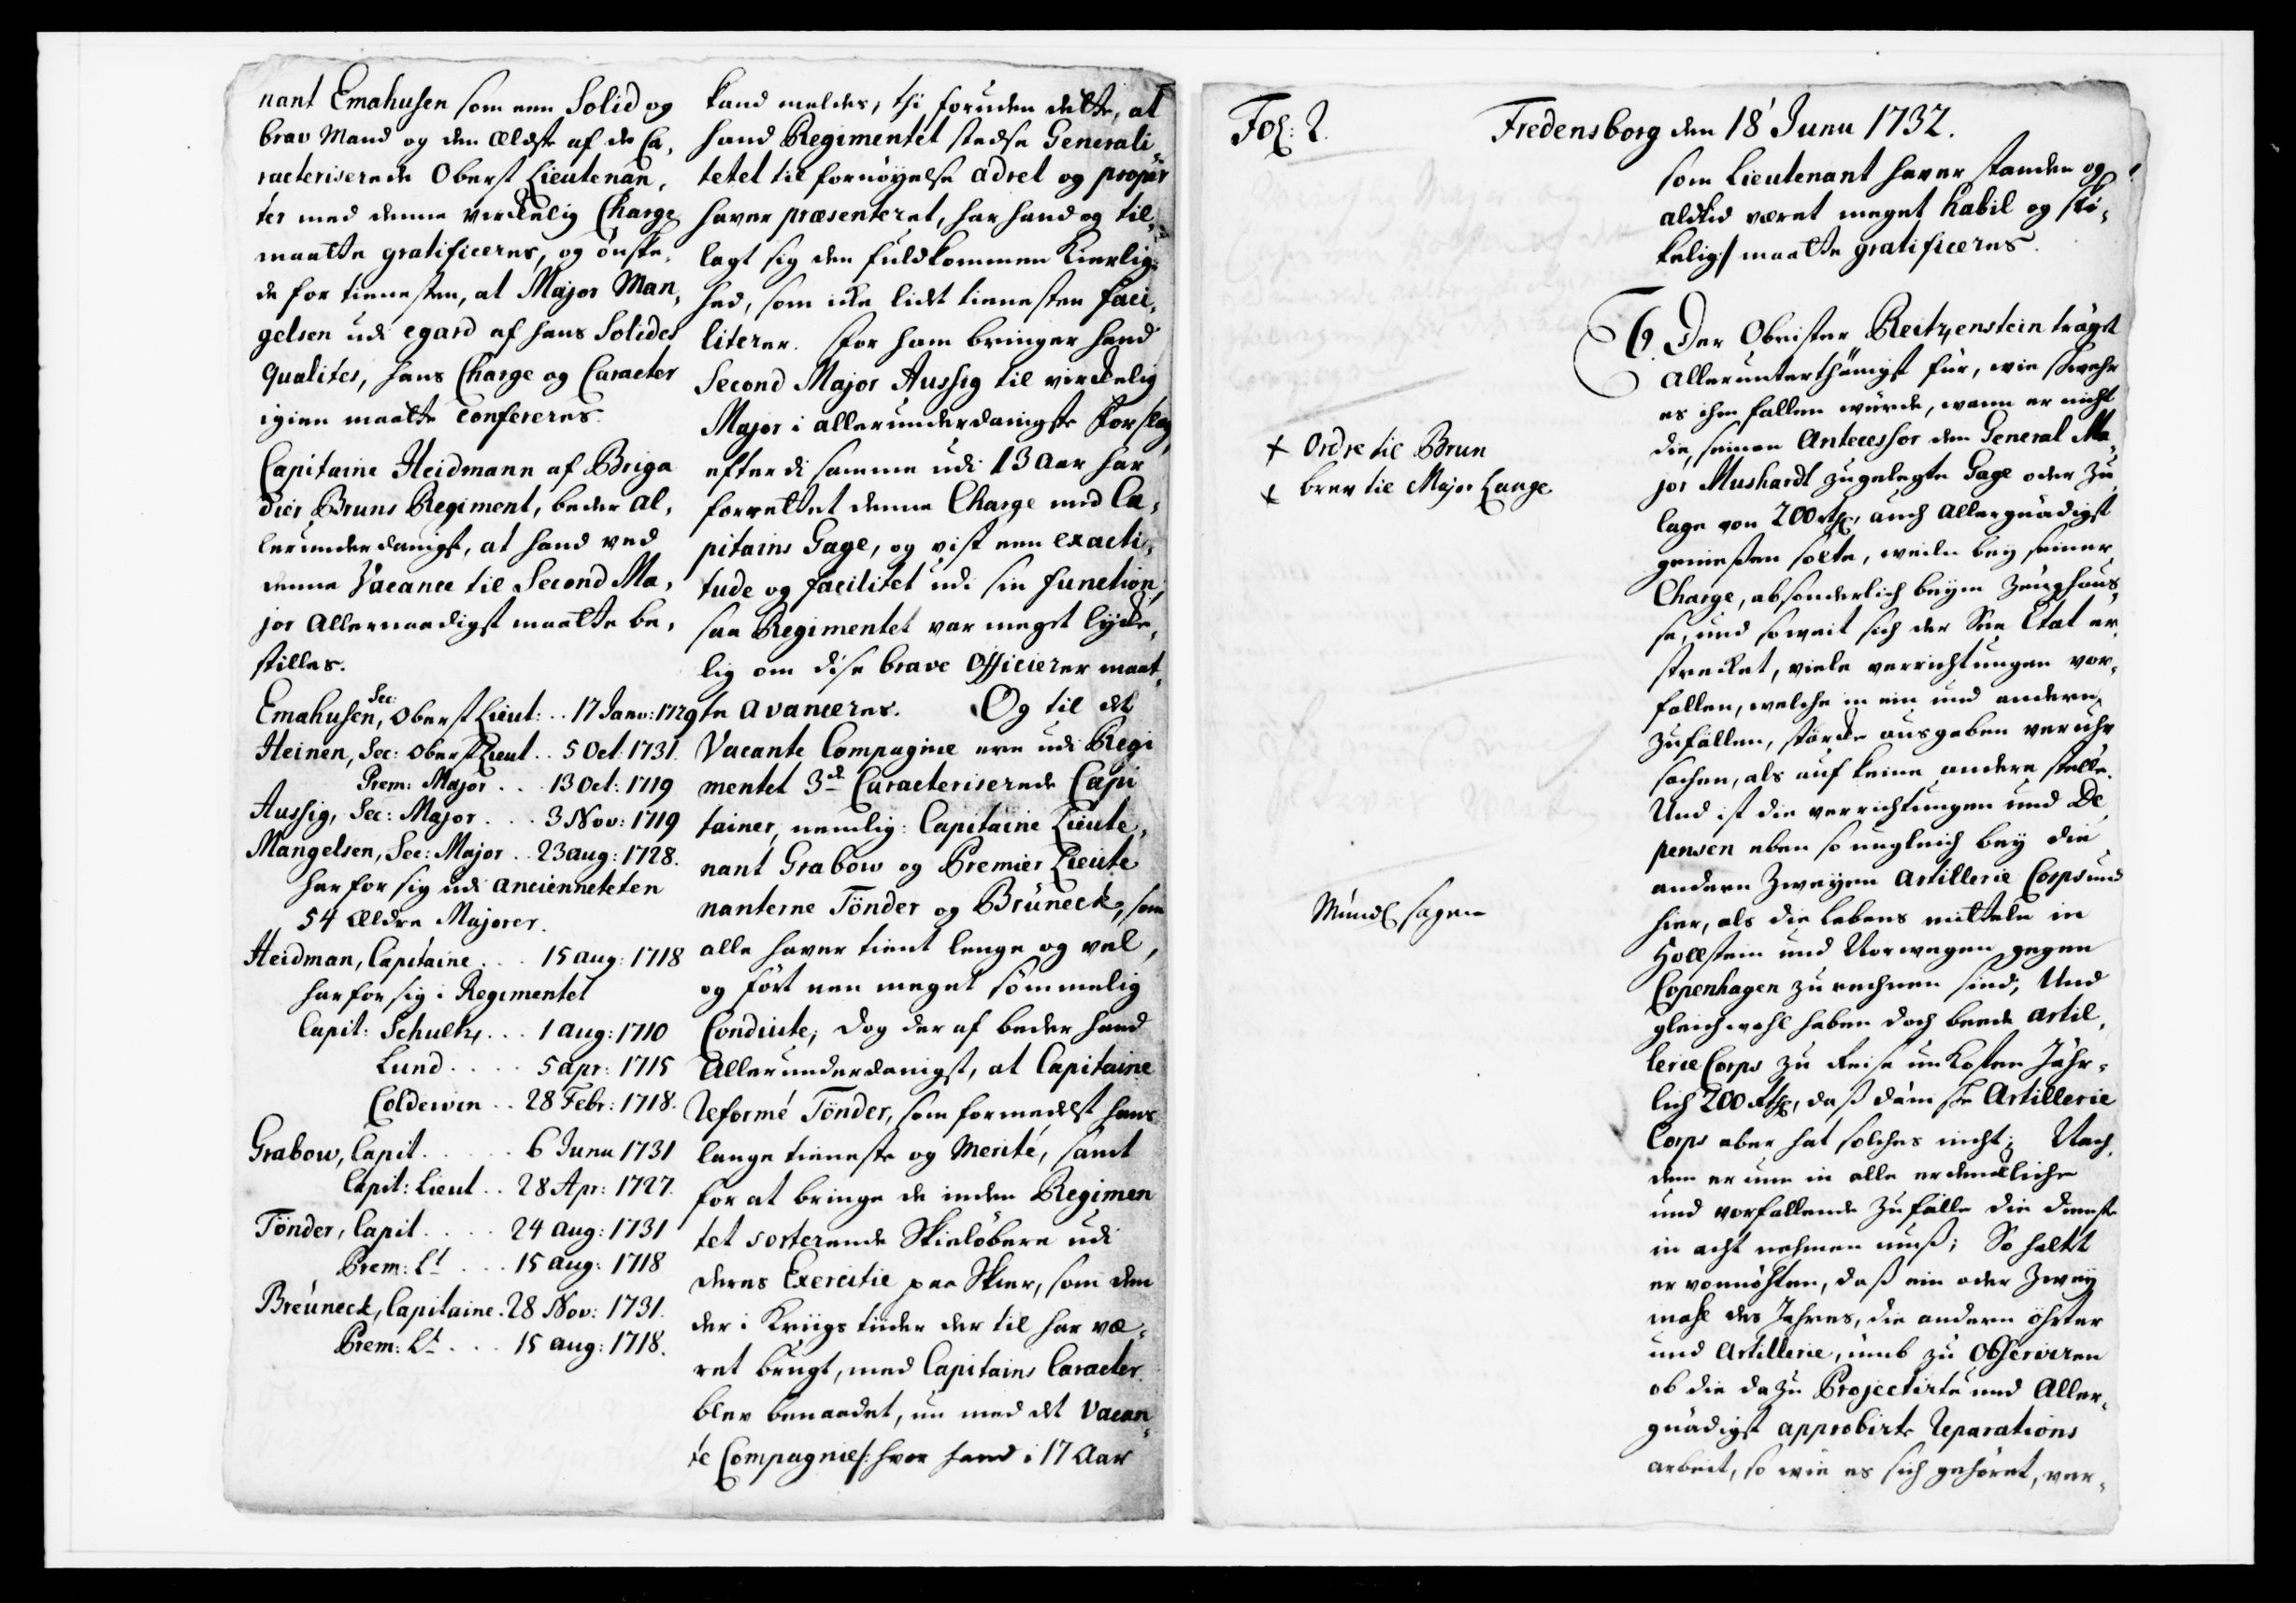 nant Emahusen som een Solid og
brav Mand og den Ældste af de Ca,
racteriserede Oberst Lieutenan,
ter med denne virkelig Charge
maatte gratificeres, og ønske,
de for tienesten, at Major Man,
gelsen udi egard af hans Solides
qualités, hans Charge og Caracter
igien maatte confereres.
Capitaine Heidmann af Briga
dier Bruns Regiment, beder al,
lerunderdanigst, at hand ved
denne Vacance til Second Ma,
jor Allernaadigst maatte be,
stilles.
Emahusen, Sec: Oberst Lieut: .. 17 Janv: 1729
Heinen, Sec: Oberst Lieut .. 5 Oct: 1731.
Prem: Major . . 13 Oct: 1719
Aussig, Sec: Major . . . 3 Nov: 1719
Mangelsen, Sec: Major .. 23 aug: 1728.
har for sig udi ancienneteten
54 Ældre Majorer.
Heidman, Capitaine . . . 15 aug: 1718
har for sig i Regimentet
Capit: Schultz . . . 1 aug: 1710
Lund . . . . 5 apr: 1715
Coldewin . . 28 Febr: 1718.
Grabow, Capit . . . . . 6 Junii 1731
Capit: Lieut . . 28 Apr: 1727.
Tönder, Capit . . . . 24 aug: 1731
Prem: Lt . . . 15 aug: 1718
Breüneck, Capitaine . 28 Nov: 1731.
Prem: Lt . . . 15 aug: 1718.
kand meldes, thi foruden dette, at
hand Regimentet stedse Generali
tetet til fornøyelse adret og propür
haver præsenteret, har hand og til,
lagt sig den fuldkommen Kierlig,
hed, som icke lidt tienesten faci,
literer. For ham bringer hand
Second Major Aussig til virckelig
Major i allerunderdanigste Forslag
efterdi samme udi 13 Aar har
forrettet denne Charge med Ca,
pitains Gage, og vist een exacti,
tude og facilitet udi sin function,
saa Regimentet var meget lycke,
lig om disse brave Officierer maat,
te avanceres. Og til det
Vacante Compagnie ere udi Regi
mentet 3de Caracteriserede Capi
tainer, nemlig: Capitaine Lieute,
nant Grabow og Premier Lieute
nanterne Tönder og Brüneck, som
alle haver tient lenge og vel,
og ført een meget sømmelig
Conduite, dog der af beder hand
Allerunderdanigst, at Capitaine
Reformé Tönder, som formedelst hans
lange tieneste og Merité, samt
for at bringe de inden Regimen
tet sorterende Skieløbere udi
deres Exercitie paa Skier, som den
der i Kriigs tiider der til har væ,
ret brugt, med Capitains Caracter
blev benaadet, nu med det Vacan,
te Compagnie /: hvor hand i 17 Aar
Fol: 2.
Fredensborg den 18' Junii 1732.
som Lieutenant haver standen og
aldtid været meget habil og ski,
kelig :/ maatte gratificeres.
6. Der Obrister Reitzenstein träget
Allerunterthänigst für, wie schwehr
es ihm fallen würde, wann er nicht
die, seinem Antecessor dem General Ma,
jor Mushardt zugelegte Gage oder Zu,
lage von 200 Rthl, auch Allergnädigst
genießen solte, weile bey seiner
Charge, absonderlich beym Zeughau,
se, und so weit sich der See Etat er,
strecket, viele verrichtungen vor,
fallen, welche in ein und andern
Zufällen, starcke ausgaben veruhr
sachen, als auf keine andere stelle.
Und ist die verrichtungen und De,
pensen eben so ungleich bey die
andern Zweyen Artillerie Corps und
hier, als die lebens mitteln in
Hollstein und Norwegen gegen
Copenhagen zu rechnen sind, Und
gleichwohl haben doch beede Artil,
lerie Corps zu Reise unkosten Jähr-
lich 200 Rthl, daß dänische Artillerie
Corps aber hat solches nicht; Nach,
dem er nun in alle erdenckliche
und vorfallende Zufälle die dienste
in acht nehmen muß; So haltt
er vonnöhten, daß ein oder Zwey
mahl des Jahres, die andern öhrter
und Artillerie, umb zu Observiren
ob die dazu Projectirte und Aller,
gnädigst approbirte Reparations
arbeit, so wie es sich gehöret, ver,
+ Ordre til Brun
+ brev til Major Lange
Mündl sagen